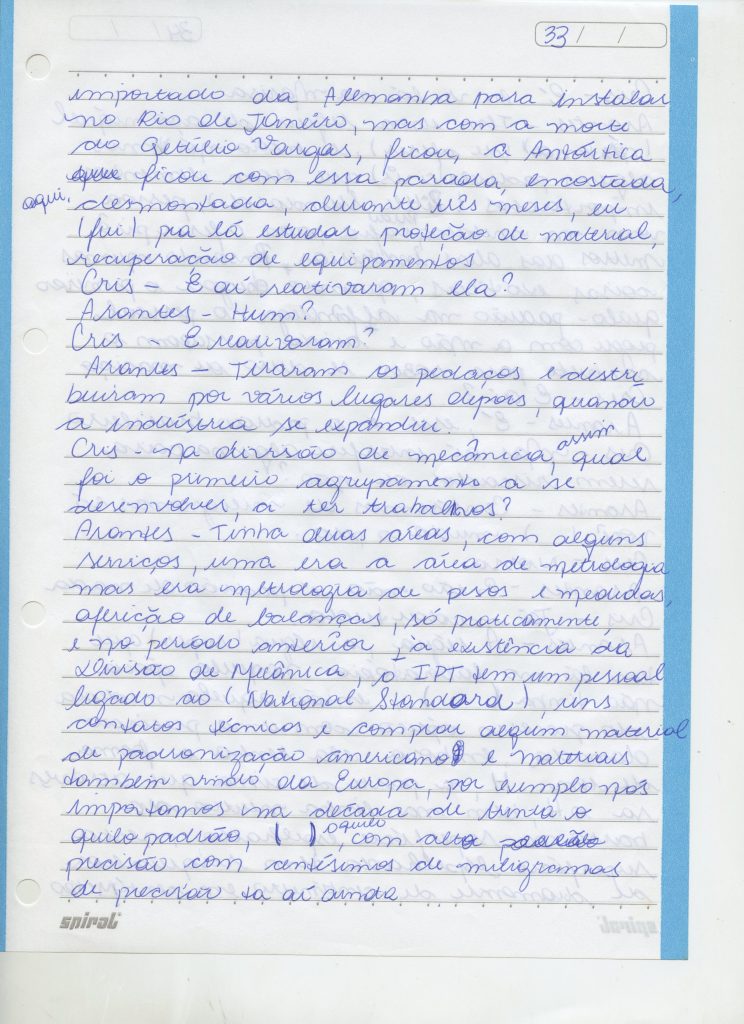 33 / /
importado da Alemanha para instalar
no Rio de Janeiro, mas com a morte
do Getúlio Vargas, ficou, a Antártica
ficou com essa parada, encostada,
aqui.
desmontada, durante três meses, eu
(fui) pra lá estudar proteção de material,
recuperação de equipamentos
Cris - E aí reativaram ela?
Arantes - Hum?
Cris - E reativaram?
Arantes - Tiraram os pedaços e distri
buiram por vários lugares depois, quando
a indústria se expandiu.
Cris - na divisão de mecânica, assim qual
foi o primeiro agrupamento a se
desenvolver, a ter trabalhos?
Arantes - Tinha duas áreas, com alguns
serviços, uma era a área de metrologia
mas era metrologia de pesos e medidas,
aferição de balanças, só praticamente,
e no período anterior, à existência da
Divisão de Mecânica, o IPT tem um pessoal
ligado ao (National Standard), uns
contatos técnicos e comprou algum material
de padronização americano e materiais
também vindo da Europa, por exemplo nós
importamos na década de trinta o
quilo padrão, ( ) o quilo, com alta
precisão com centésimos de miligramas
de precisão ta aí ainda
spiral